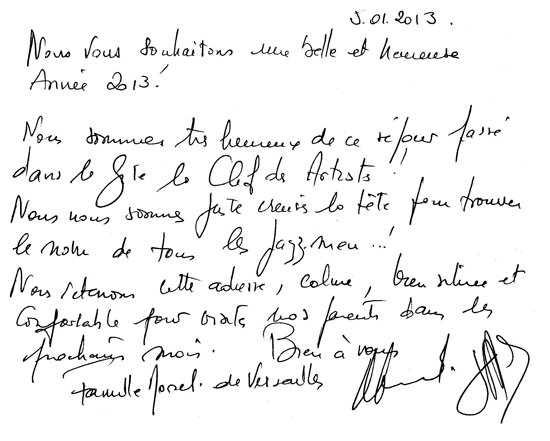 5.01.2013.
Nous Vous souhaitons une belle et heureuse
Année 2013!
Nous sommes très heureux de ce séjour passé
dans le Gîte la Clef des Artistes.
Nous nous sommes juste creusés la tête pour trouver
le nom de tous les jazzmen...!
Nous retenons cette adresse, calme, bien située et
confortable pour visiter nos parents dans les
prochains mois. Bien à vous
famille de Versailles